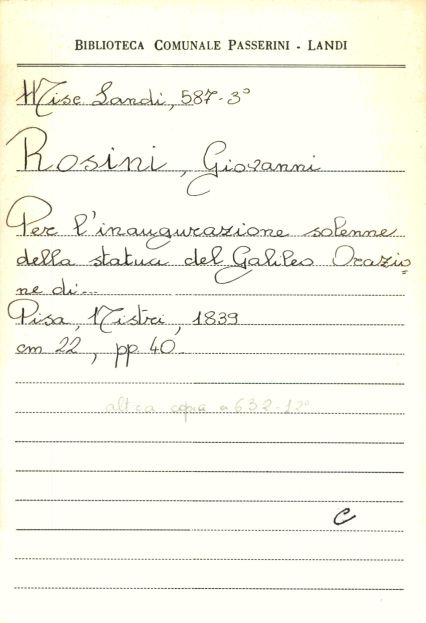 BIBLIOTECA COMUNALE PASSERINI - LANDI
Misc Landi, 587-3°
Rosini, Giovanni
Per l'inaugurazione solenne
della statua del Galileo Orazio=
ne di...
Pisa, Nistri, 1839
cm 22, pp. 40
altra copia a 632-12°
C